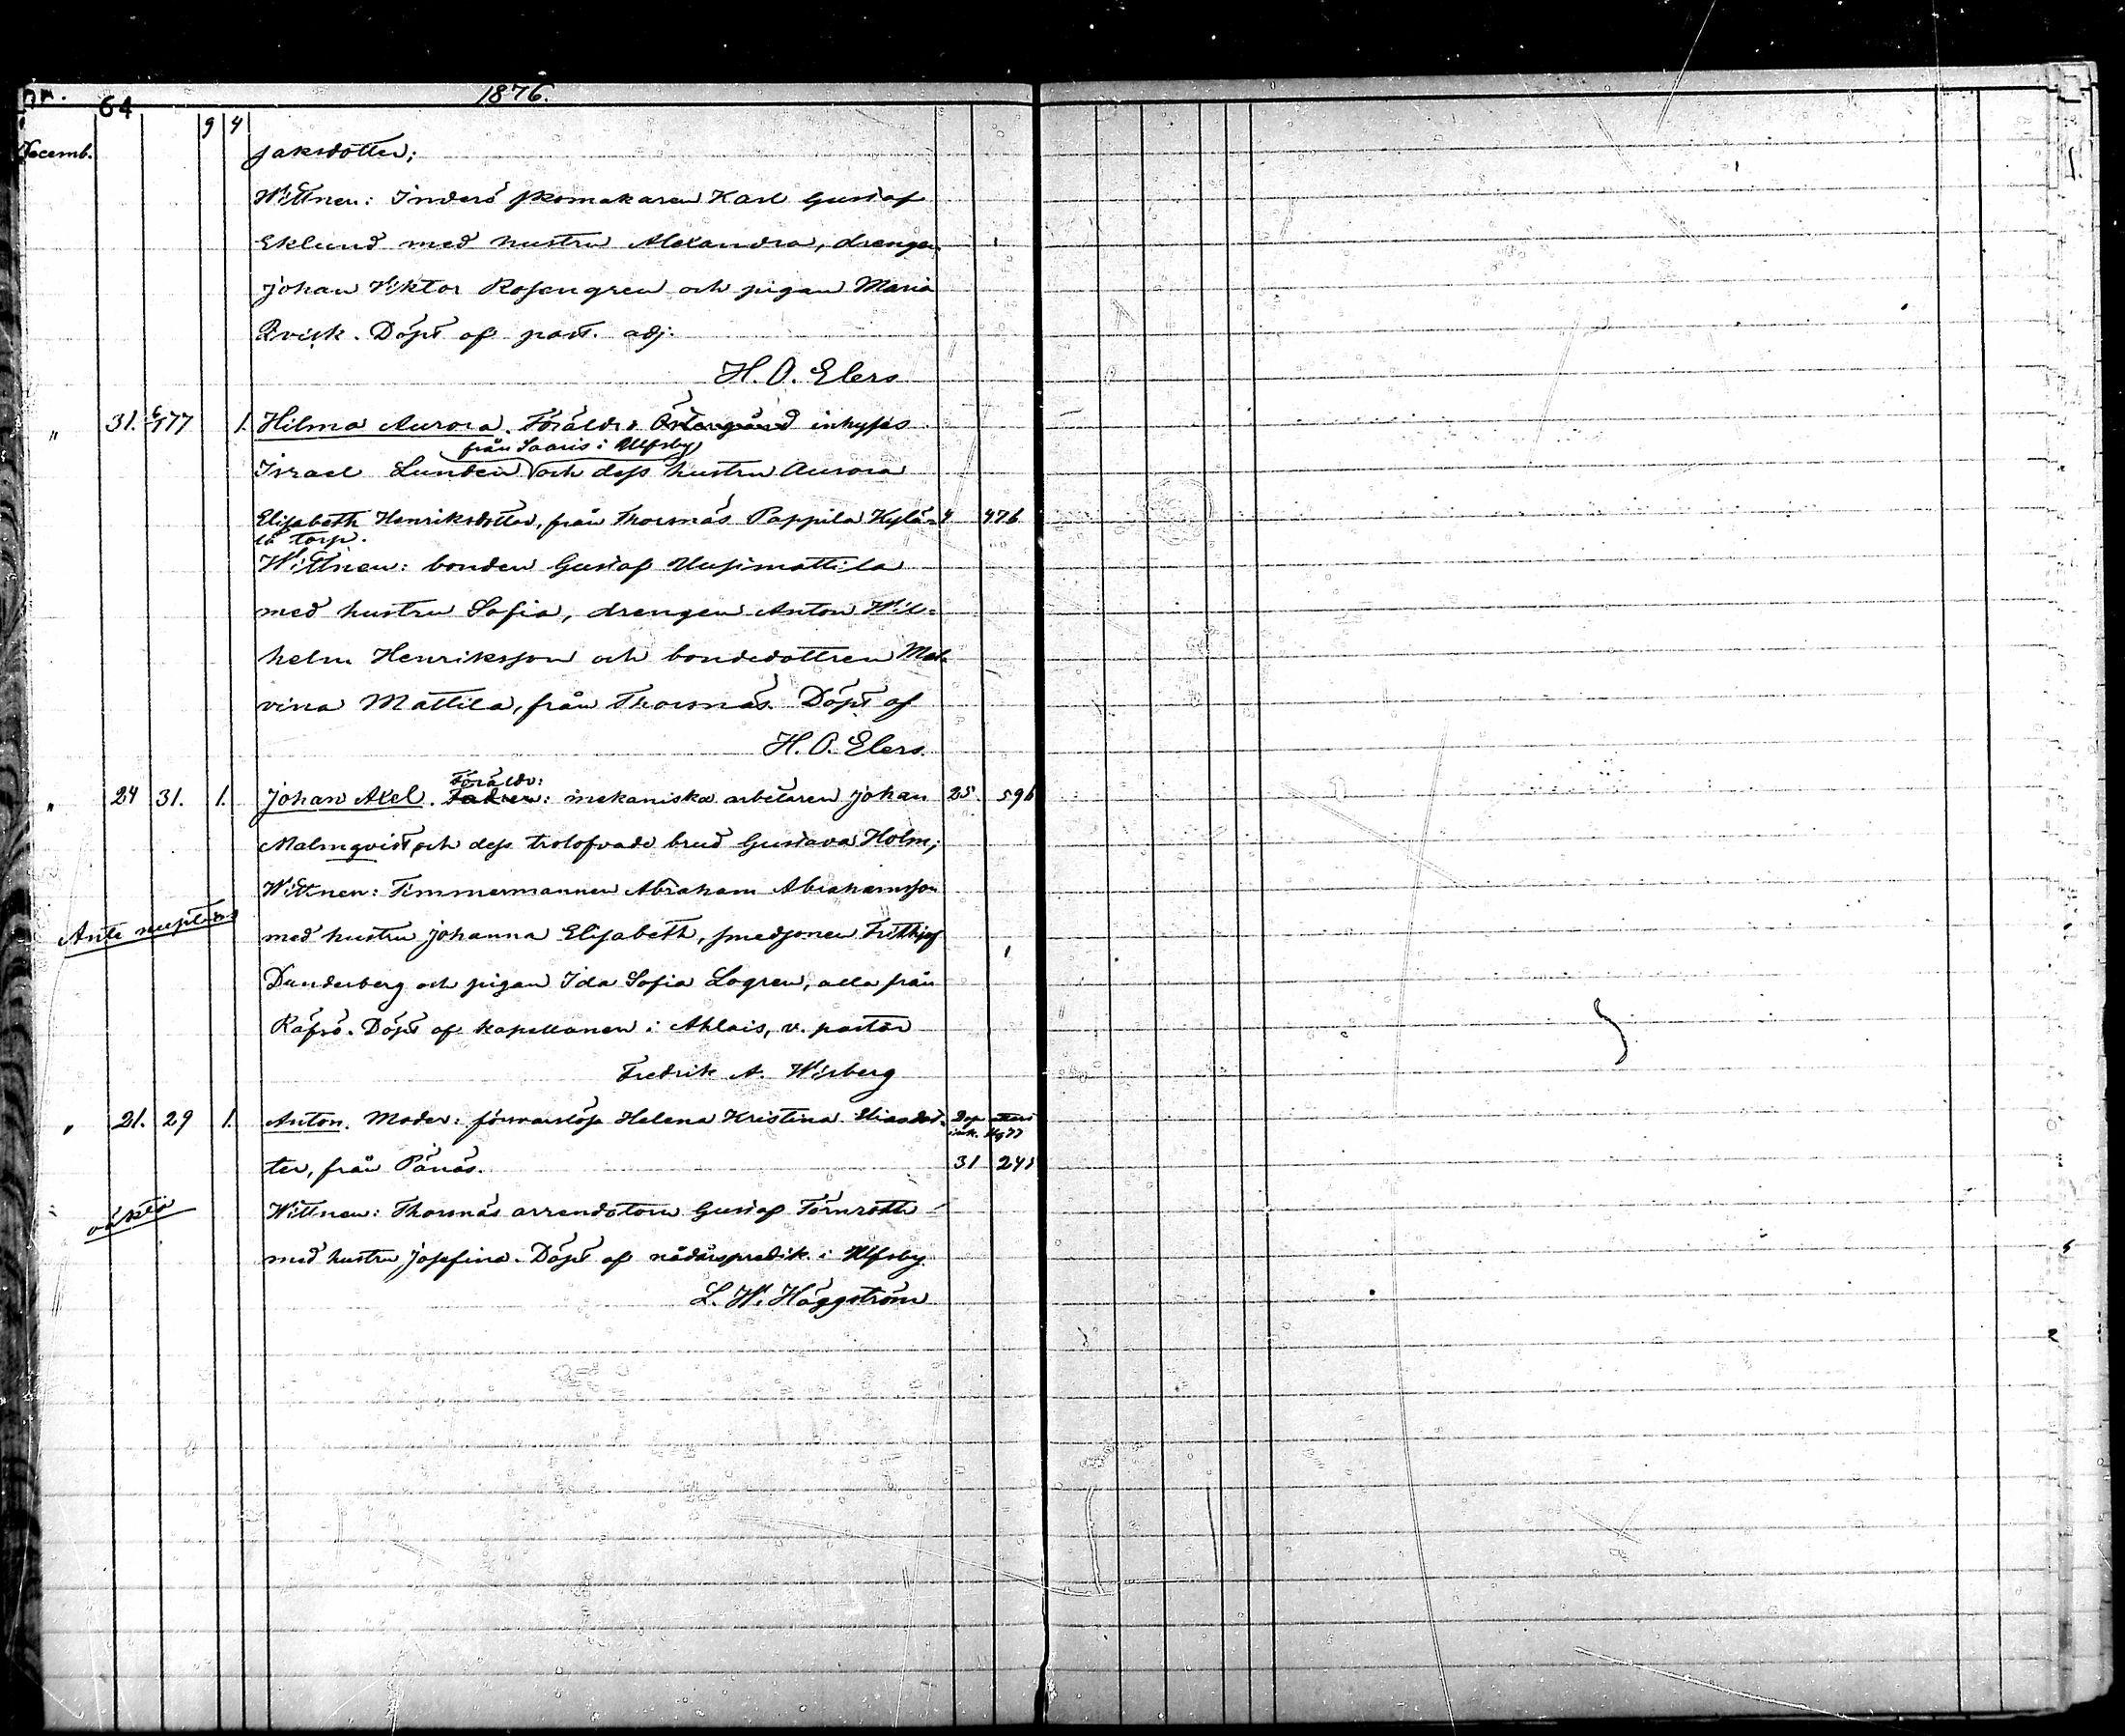 64
1876.
9 4
Decemb.
Jaksdotter;
Wittnen: Inderö skomakaren Karl Gustaf
Eklund med hustru Alexandra, drengen
Johan Viktor Rosengren och pigan Maria
Qvick. Döpt af past. adj.
H. O. Elers
" 31. 6/1 77 1. Hilma Aurora. Föräldr. inhyses
från Saaris i Ulfsby
Israel Lunden och dess hustru Aurora
Elisabeth Henriksdotter, från Thorsnäs Pappila Kylän= 4 476
torp.
Wittnen: bonden Gustaf Uusimattila
med hustru Sofia, drengen Anton Wil=
helm Henriksson och bondedottren Mal=
vina Mattila, från Thorsnäs. Döpt af
H. O. Elers.
Föräldr:
" 24 31. 1. Johan Axel. Fadren: mekaniska arbetaren Johan 25. 596
Malmqvist, och dess trolofvade brud Gustava Holm;
Wittnen: Timmermannen Abraham Abrahamsson
Ante nuptias
med hustru Johanna Elisabeth, smedsonen Frithiof
Dunderberg och pigan Ida Sofia Logren, alla från
Räfsö. Döpt af kapellanen i Ahlais, v. pastor
Fredrik A. Wisberg
" 21. 29 1. Anton. Moder: försvarslösa Helena Kristina Eliasdot= Dop
ter, från Pänäs. 31 245
oäkta
Wittnen: Thorsnäs arrendatorn Gustaf Törnroth
med hustru Josefina. Döpt af nådårspredik. i Ulfsby
L. W. Häggström